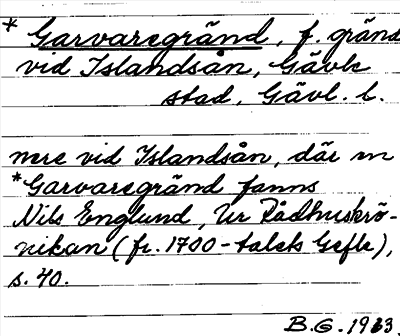 * Garvaregränd, f. gränd
vid Islandsån, Gävle
stad, Gävl. l.
nere vid Islandsån, där en
*Garvaregränd fanns
Nils Englund, Ur Rådhuskrö-
nikan (fr. 1700-talets Gefle),
s. 40.
B.G. 1933.